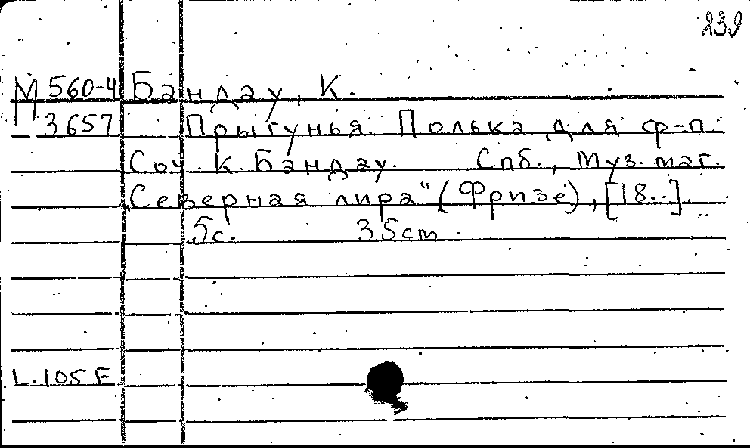 239
М 560-4 Бандау, К.
П 3657 Прыгунья. Полька для ф-п.
Соч. К. Бандау. Спб., Муз. маг.
„Северная лира" (Фризе), [18..].
5с. 35cm.
L. 105 E